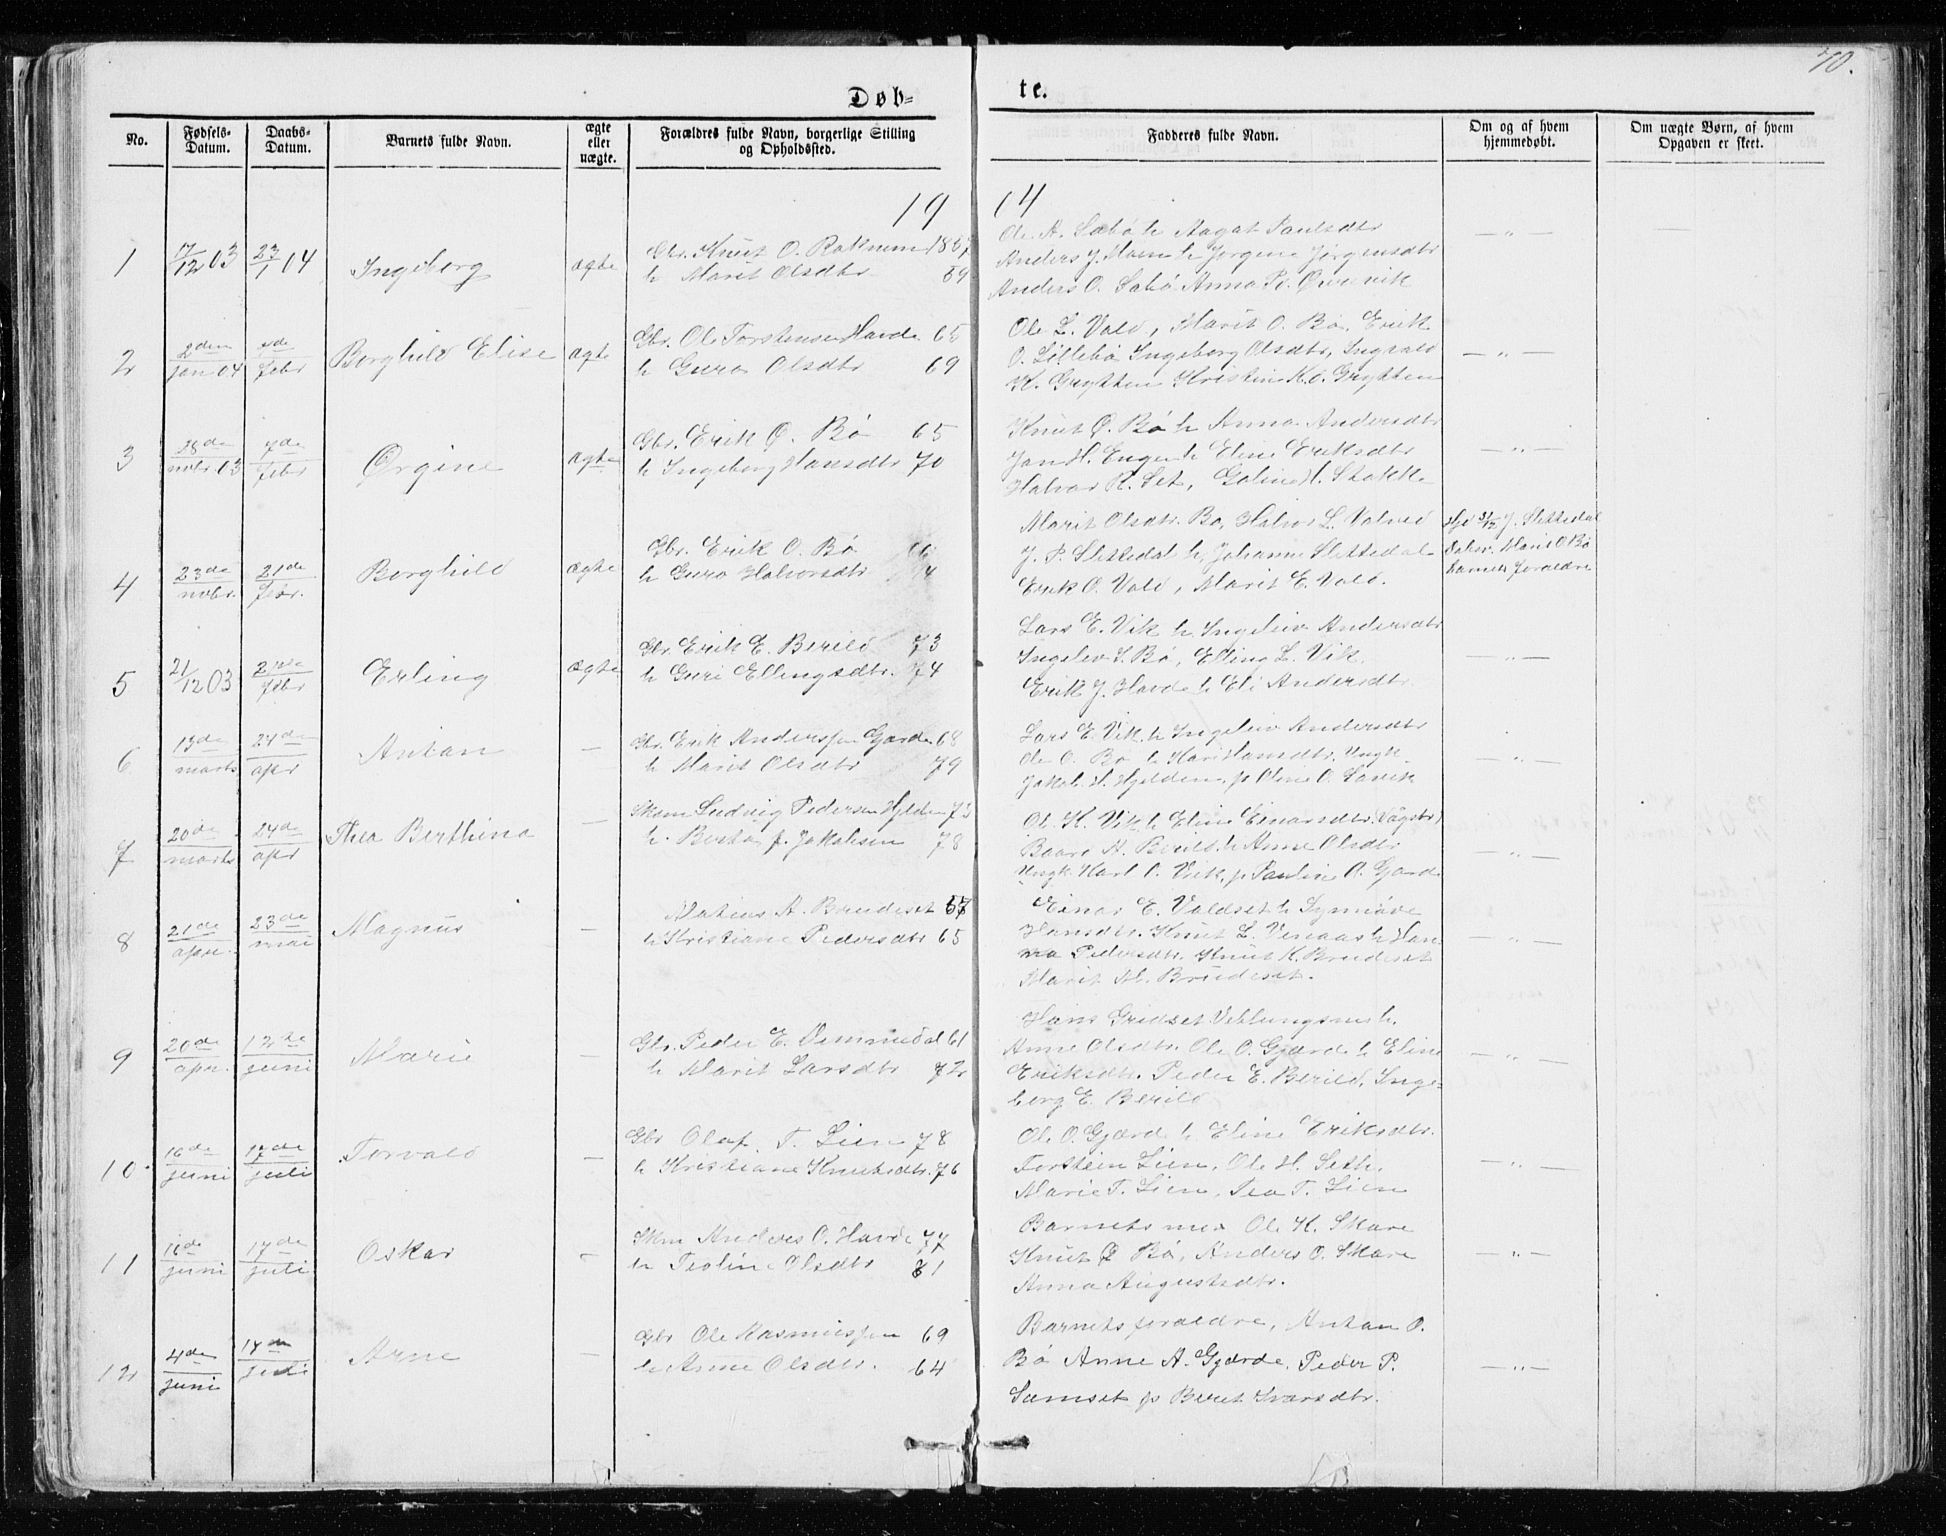 70.
Døb-
te.
No.
Fødsels-
Datum.
Daabs-
Datum.
Barnets fulde Navn.
ægte
eller
uægte.
Forældres fulde Navn, borgerlige Stilling
og Opholdssted.
Fadderes fulde Navn.
Om og af hvem
hjemmedøbt.
Om uægte Børn, af hvem
Opgaven er skeet.
19
04
1
17/12 03
23/1 04
Ingeborg
ægte
Gbr. Knut O. Roknem 1857
h Marit Olsdtr 59
Ole A. Sæbø h Aagat Paulsdtr
Anders J. Moen h Jørgine Jørgensdtr
Anders O. Sæbø Anna P.
— „ —
2
2den
jan 04
febr
Borghild Elise
ægte
Gbr. Ole Torstensen Havde 65
h Guro Olsdtr 69
Ole L. Vold, Marit O. Bø, Erik
O. Lillebø Ingeborg Olsdtr, Ingvald
K. Grytten Kristine K. O. Grytten
— „ —
3
28de
novbr 03
7de
febr
Ørgine
ægte
Gbr. Erik O. Bø 65
h Ingeborg Hansdtr 70
Knut O. Bø h Anna Andersdtr
Jon H. Engen h Eline Eriksdtr
Halvor R. Set, Goline H. Stokke
— „ —
4
23de
novbr.
21de
febr.
Borghild
ægte
Gbr. Erik O. Bø
h Guro Halvorsdtr
Marit Olsdtr. Bø, Halvor L. Volved
J. P. Slettedal h Johanne Slettedal
Erik O. Vold, Marit E. Vold.
J. Slettedal
Marit O Bø
barnets foræeldre
5
21/12 03
febr
Erling
ægte
Gbr. Erik E. Berild 73
h Guri Ellingsdtr. 74
Lars E. Vik h Ingeleiv Andersdtr
Ingelev L. Bø, Elling L. Vik.
Erik J. Havde h Eli Andersdtr.
— „ —
6
13de
marts
24de
apr
Antan
—
Gbr. Erik Anderssen Gjærde 68
h Marit Olsdtr 79
Lars E. Vik h Ingeleiv Andersdtr
Ole O. Bø h Kari Hansdtr, Ungk.
Jakob L. Hjelden, p Oline O. Sarvik
— „ —
7
20de
marts
24de
apr
Thea Berthina
—
Skom Ludvig Pedersen Hjelden 73
h. Berta f. Jakobsen 78
Ole K. Vik h Eline Einarsdtr (Vågstr)
Baard A. Berild h Anne Olsdtr
Ungk Karl O. Vik, p. Pauline O. Gjærde
— „ —
8
21de
apr.
23de
mai
Magnus
—
Matias A. Brudeset 57
h Kristiane Pedersdtr 65
Einar E. Voldset h Synnøve
Hansdtr. Knut L. Venaas h Han-
na Pedersdtr. Knut K. Brudeset
Marit M. Brudeset.
— „ —
9
20de
apr.
12te
juni
Marie
—
Gbr. Peder E. Vemmedal 61
h Marit Larsdtr 72
Hans Gridset Veblungsnes h.
Anne Olsdtr. Ole O. Gjærde h Eline
Eriksdtr. Peder E. Berild, Inge-
borg E. Berild
— „ —
10.
16de
juni
17de
juli
Torvald
—
Gbr Olaf T. Lien 78
h Kristiane Knutsdtr. 76
Ole O. Gjærde h Eline Eriksdtr.
Torstein Lien, Ole H. Seth.
Marie T. Lien, Tea T. Lien
— „ —
11
16de
juni
17de
juli
Oskar
—
Skm Anders O. Havde 77
h Teoline Olsdtr 81
Barnets mor Ole K. Skare
Knut O Bø, Anders O. Skare
Anna Augustsdtr.
— „ —
12
4de
juni
juli
Arne
—
Gbr Ole Rasmussen 69
h Anne Olsdtr. 64
Barnets forældre, Antan O.
Bø Anne A. Gjærde. Peder P.
Samset p Beret Ivarsdtr.
— „ —